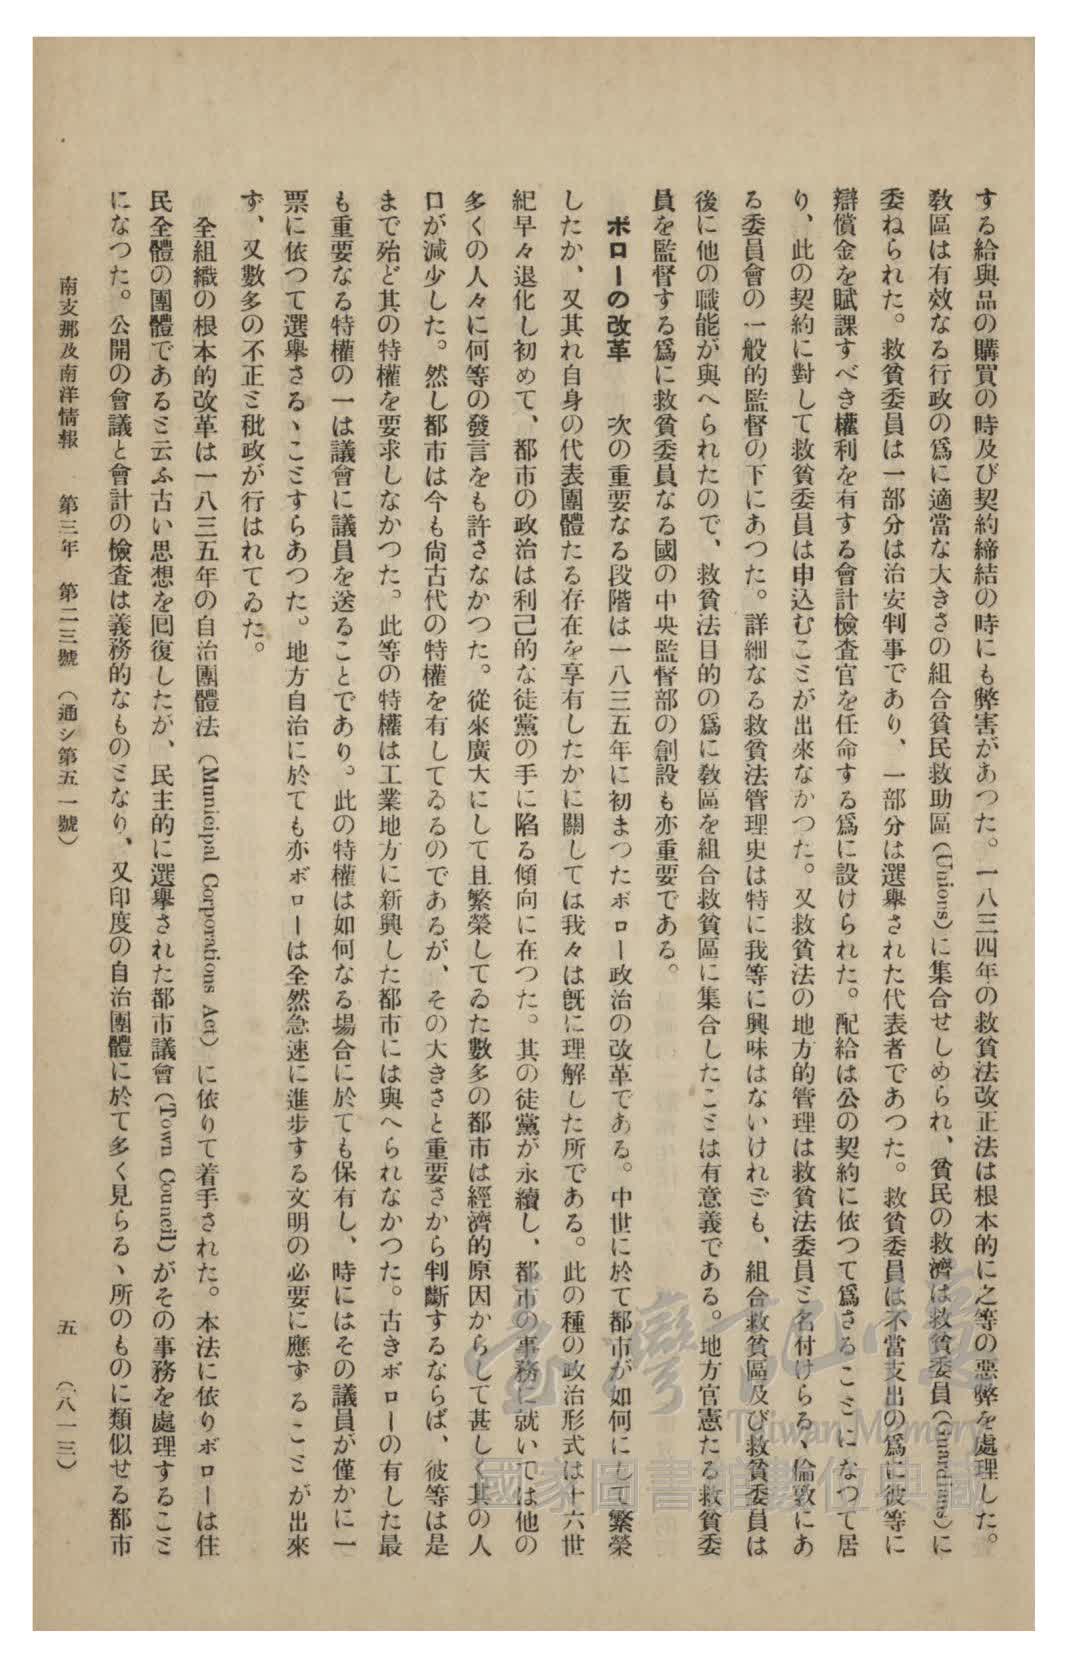 する給與品の購買の時及び契約締結の時にも弊害があつた。一八三四年の救貧法改正法は根本的に之等の惡弊を處理した。
敎區は有效なる行政の爲に適當な大きさの組合貧民救助區(Unions)に集合せしめられ、貧民の救濟は救貧委員(Guardians)に
委ねられた。救貧委員は一部分は治安判事であり、一部分は選擧された代表者であつた。救貧委員は不當支出の爲に彼等に
辯償金を賦課すべき權利を有する會計檢査官を任命する爲に設けられた。配給は公の契約に依つて爲さるゝことになつて居
り、此の契約に對して救貧委員は申込むことが出來なかつた。又救貧法の地方的管理は救貧法委員と名付けらるゝ倫敦にあ
る委員會の一般的監督の下にあつた。詳細なる救貧法管理史は特に我等に興味はないけれども、組合救貧區及び救貧委員は
後に他の職能が與へられたので、救貧法目的の爲に敎區を組合救貧區に集合したことは有意義である。地方官憲たる救貧委
員を監督する爲に救貧委員なる國の中央監督部の創設も亦重要である。
ボローの改革　次の重要なる段階は一八三五年に初まつたボロー政治の改革である。中世に於て都市が如何にして繁榮
したか、又其れ自身の代表團體たる存在を享有したかに關しては我々は旣に理解した所である。此の種の政治形式は十六世
紀早々退化し初めて、都市の政治は利己的な徒黨の手に陷る傾向に在つた。其の徒黨が永續し、都市の事務に就いては他の
多くの人々に何等の發言をも許さなかつた。從來廣大にして且繁榮してゐた數多の都市は經濟的原因からして甚しく其の人
口が減少した。然し都市は今も尙古代の特權を有してゐるのであるが、その大きさと重要さから判斷するならば、彼等は是
まで殆ど其の特權を要求しなかつた。此等の特權は工業地方に新興した都市には與へられなかつた。古きボローの有した最
も重要なる特權の一は議會に議員を送ることであり。此の特權は如何なる場合に於ても保有し、時にはその議員が僅かに一
票に依つて選擧さるゝことすらあつた。地方自治に於ても亦ボローは全然急速に進步する文明の必要に應ずることが出來
ず、又數多の不正と秕政が行はれてゐた。
全組織の根本的改革は一八三五年の自治團體法(Municipal Corporations Act)に依りて着手された。本法に依りボローは住
民全體の團體であると云ふ古い思想を囘復したが、民主的に選擧された都市議會(Town Council)がその事務を處理すること
になつた。公開の會議と會計の檢査は義務的なものとなり、又印度の自治團體に於て多く見らるゝ所のものに類似せる都市
南支那及南洋情報　第三年　第二三號　(通シ第五一號)　五　(八一三)
臺灣記憶
Taiwan Memory
國家圖書館數位典藏